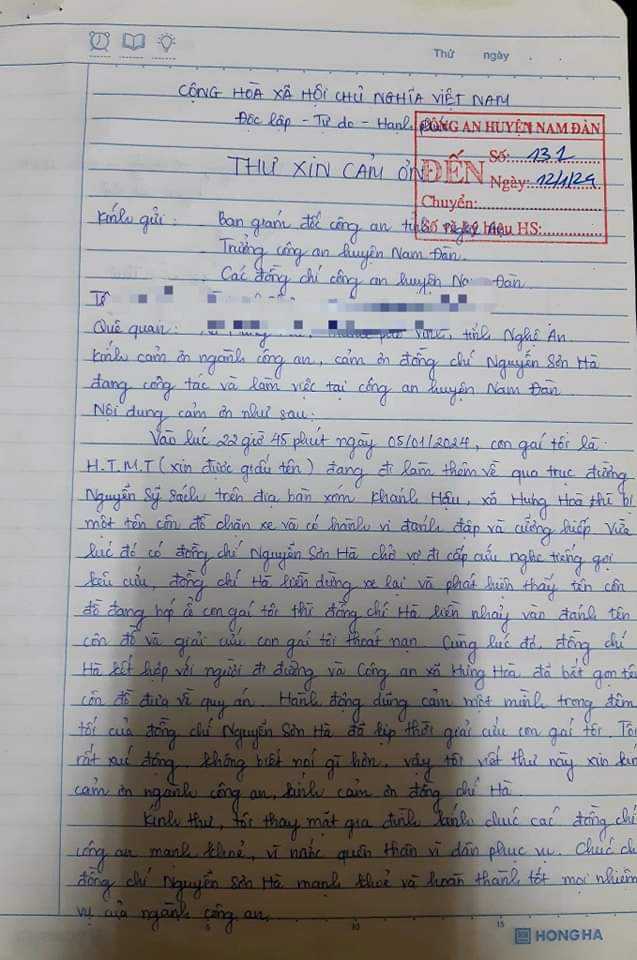 Thứ ngày
CỘNG HOÀ XÃ HỘI CHỦ NGHĨA VIỆT NAM
Độc lập - Tự do - Hạnh phúc
CÔNG AN HUYỆN NAM ĐÀN
ĐẾN
Số: 131
Ngày: 12/1/24
Chuyển:
Số và ký hiệu HS:
THƯ XIN CẢM ƠN
Kính gửi: Ban giám đốc công an tỉnh Nghệ An
Trưởng công an huyện Nam Đàn.
Các đồng chí công an huyện Nam Đàn.
Quê quan: tỉnh Nghệ An.
Kính cảm ơn ngành công an, cảm ơn đồng chí Nguyễn Sơn Hà
đang công tác và làm việc tại công an huyện Nam Đàn.
Nội dung cảm ơn như sau:
Vào lúc 22 giờ 45 phút ngày 05/01/2024, con gái tôi là
H.T.M.T (xin được giấu tên) đang đi làm thêm về qua trục đường
Nguyễn Sỹ Sách trên địa bàn xóm Khánh Hậu, xã Hưng Hoà thì bị
một tên côn đồ chặn xe và có hành vi đánh đập và cưỡng hiếp. Vừa
lúc đó có đồng chí Nguyễn Sơn Hà chở vợ đi cấp cứu nghe tiếng gọi
kêu cứu, đồng chí Hà liền dừng xe lại và phát hiện thấy tên côn
đồ đang bóp cổ con gái tôi thì đồng chí Hà liền nhảy vào đánh tên
côn đồ và giải cứu con gái tôi thoát nạn. Cùng lúc đó, đồng chí
Hà kết hợp với người đi đường và Công an xã Hưng Hoà đã bắt gọn tên
côn đồ đưa về quy án. Hành động dũng cảm một mình trong đêm
tối của đồng chí Nguyễn Sơn Hà đã kịp thời giải cứu con gái tôi. Tôi
rất xúc động, không biết nói gì hơn, vậy tôi viết thư này xin kính
cảm ơn ngành công an, kính cảm ơn đồng chí Hà.
Kính thư, tôi thay mặt gia đình kính chúc các đồng chí
công an mạnh khoẻ, vì nước quên thân vì dân phục vụ. Chúc cho
đồng chí Nguyễn Sơn Hà mạnh khoẻ và hoàn thành tốt mọi nhiệm
vụ của ngành công an.
5 10 15
HONG HA